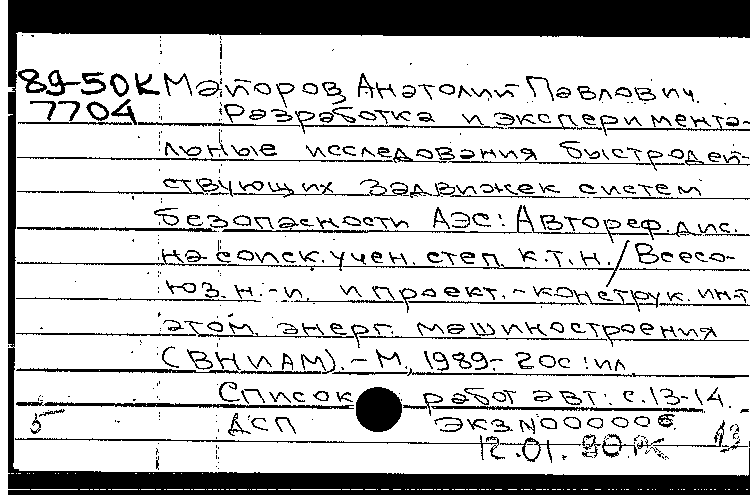 89-50К Майоров Анатолий Павлович
7704 Разработка и эксперимента-
льные исследования быстродей-
ствующих задвижек систем
безопасности АЭС: Автореф. дис.
на соиск. учен. степ. к.т.н. / Всесо-
юз. н.-и. и проект.-конструк. ин-т
атом. энерг. машиностроения
(ВНИИАМ). - М, 1989. - 20с: ил.
Список работ авт: с. 13-14.
5 ДСП Экз N000006
12.01.90 13